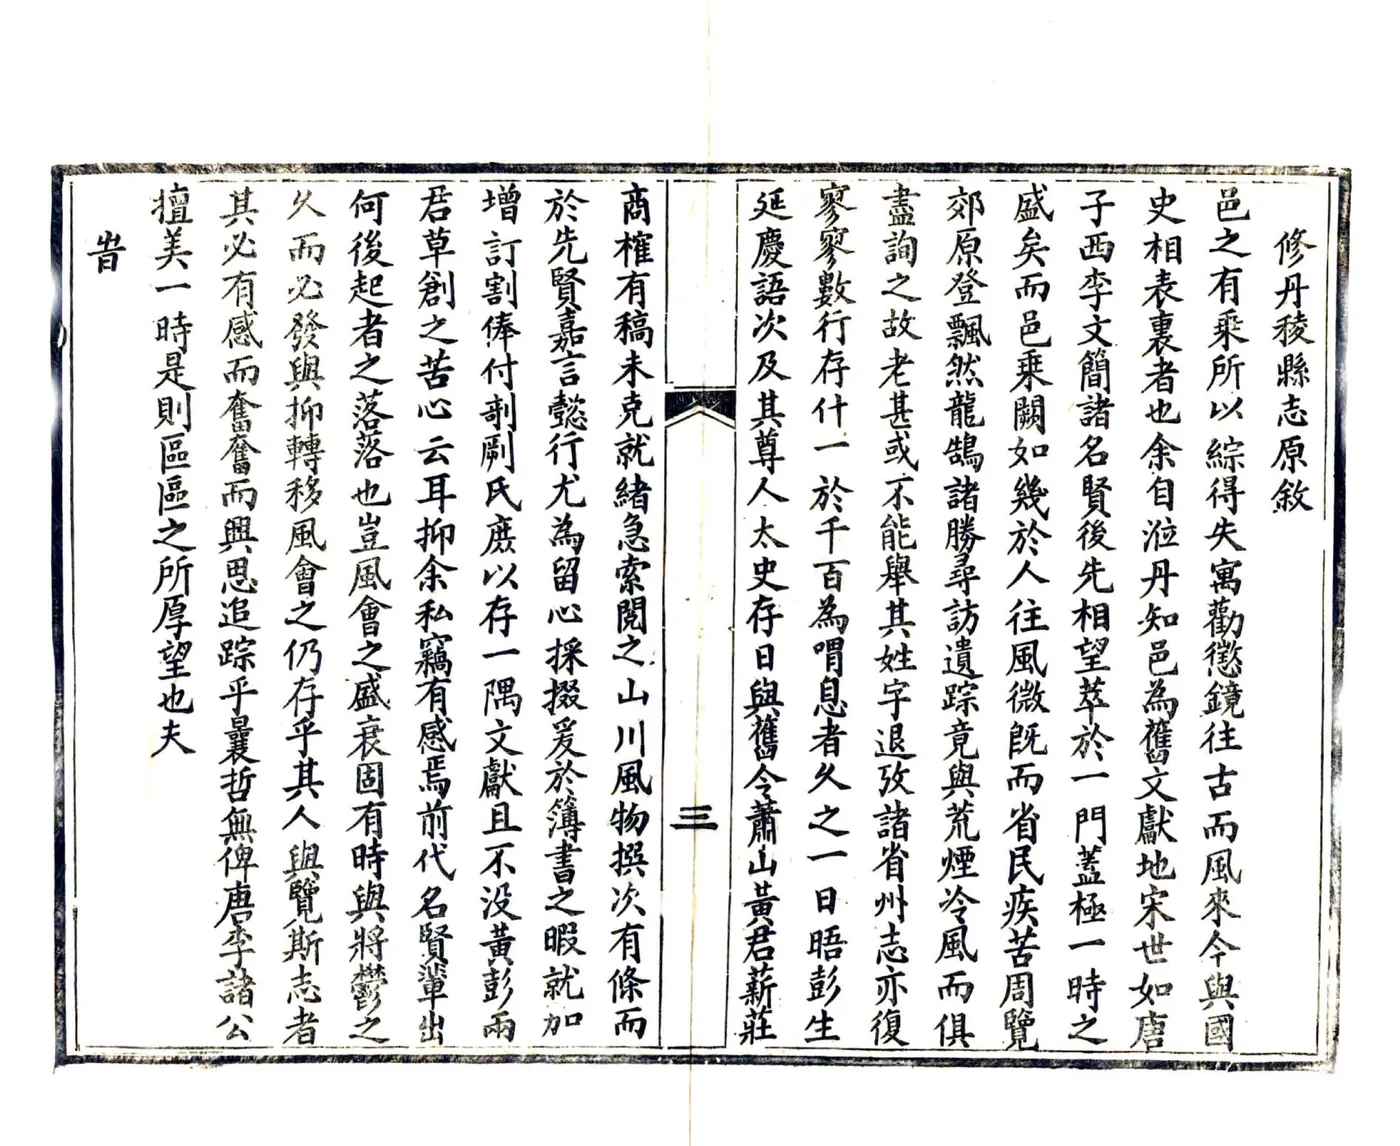 修丹稜縣志原敘
邑之有乘所以綜得失寓勸懲鏡往古而風來今與國
史相表裏者也余自涖丹知邑為舊文獻地宋世如唐
子西李文簡諸名賢後先相望萃於一門蓋極一時之
盛矣而邑乘闕如幾於人往風微旣而省民疾苦周覽
郊原登飄然龍鵠諸勝尋訪遺踪竟與荒煙冷風而俱
盡詢之故老甚或不能舉其姓字退攷諸省州志亦復
寥寥數行存什一於千百為喟息者久之一日晤彭生
延慶語次及其尊人太史存日與舊令蕭山黃君薪莊
商榷有稿未克就緒急索閱之山川風物撰次有條而
於先賢嘉言懿行尤為留心採掇爰於簿書之暇就加
增訂割俸付剞劂氏庶以存一隅文獻且不没黃彭兩
君草創之苦心云耳抑余私竊有感焉前代名賢輩出
何後起者之落落也豈風會之盛衰固有時與將鬱之
久而必發與抑轉移風會之仍存乎其人與覽斯志者
其必有感而奮奮而興思追踪乎曩哲無俾唐李諸公
擅美一時是則區區之所厚望也夫
旹
三